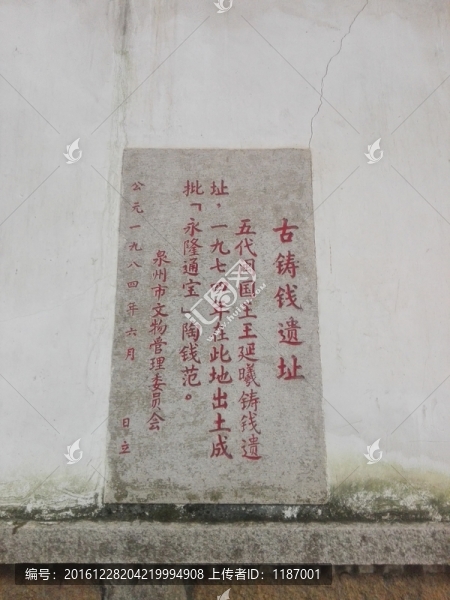 古铸钱遗址
五代闽国王王延曦铸钱遗
址，一九七四年在此地出土成
批「永隆通宝」陶钱范。
泉州市文物管理委员会
公元一九八四年六月 日立
编号：20161228204219994908 上传者ID：1187001